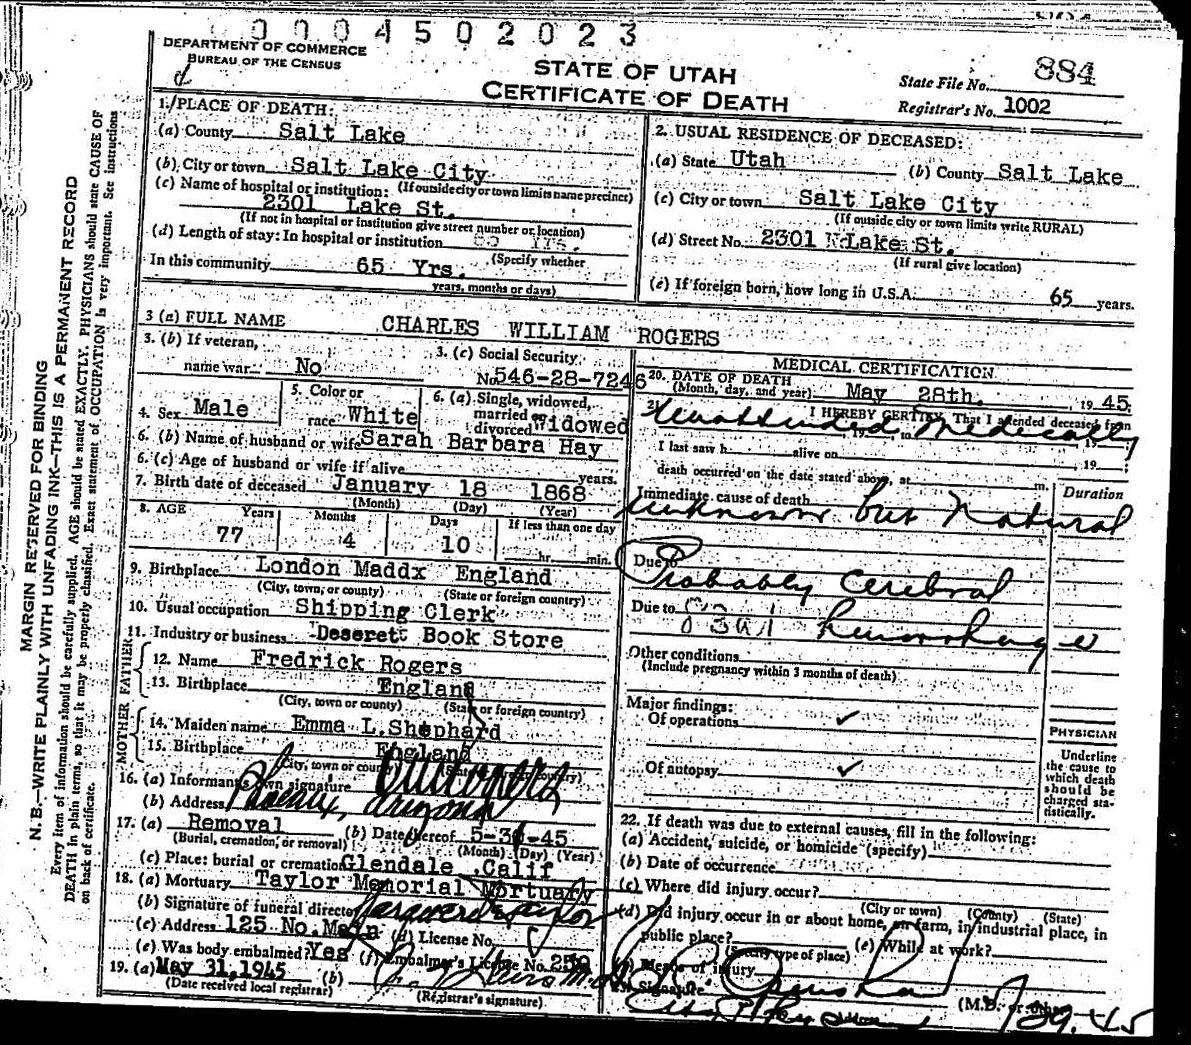 0004502023
DEPARTMENT OF COMMERCE
BUREAU OF THE CENSUS
STATE OF UTAH
CERTIFICATE OF DEATH
State File No. 884
Registrar's No. 1002
1. PLACE OF DEATH:
(a) County Salt Lake
(b) City or town Salt Lake City
(If outside city or town limits name precinct)
(c) Name of hospital or institution:
2301 Lake St.
(If not in hospital or institution give street number or location)
(d) Length of stay: In hospital or institution
(Specify whether
In this community 65 Yrs.
years, months or days)
2. USUAL RESIDENCE OF DECEASED:
(a) State Utah (b) County Salt Lake
(c) City or town Salt Lake City
(If outside city or town limits write RURAL)
(d) Street No. 2301 Lake St.
(If rural give location)
(e) If foreign born, how long in U.S.A. 65 years.
3 (a) FULL NAME CHARLES WILLIAM ROGERS
3. (b) If veteran,
name war No
3. (c) Social Security
No. 546-28-7246
4. Sex Male
5. Color or
race White
6. (a) Single, widowed,
married or
divorced Widowed
6. (b) Name of husband or wife Sarah Barbara Hay
6. (c) Age of husband or wife if alive years.
7. Birth date of deceased January 18 1868
(Month) (Day) (Year)
8. AGE Years Months Days If less than one day
77 4 10 hr. min.
9. Birthplace London Maddx England
(City, town, or county) (State or foreign country)
10. Usual occupation Shipping Clerk
11. Industry or business Deserett Book Store
FATHER
12. Name Fredrick Rogers
13. Birthplace England
(City, town or county) (State or foreign country)
MOTHER
14. Maiden name Emma L. Shephard
15. Birthplace England
(City, town or county) (State or foreign country)
16. (a) Informant's own signature
(b) Address Phoenix, Arizona
17. (a) Removal (b) Date thereof 5-31-45
(Burial, cremation, or removal) (Month) (Day) (Year)
(c) Place: burial or cremation Glendale Calif
18. (a) Mortuary Taylor Memorial Mortuary
(b) Signature of funeral director
(c) Address 125 No. Main (d) License No.
(e) Was body embalmed? Yes (f) Embalmer's License No. 250
19. (a) May 31, 1945 (b)
(Date received local registrar) (Registrar's signature)
MEDICAL CERTIFICATION
20. DATE OF DEATH
(Month, day, and year) May 28th. 1945
21. I HEREBY CERTIFY, That I attended deceased from
Unattended Medically
, 19 to , 19
I last saw h alive on , 19 ;
death occurred on the date stated above, at m.
Immediate cause of death Duration
unknown but Natural
Due to Probably Cerebral
Due to 83a1 hemorrhage
Other conditions
(Include pregnancy within 3 months of death)
Major findings:
Of operations ✓
Of autopsy ✓
PHYSICIAN
Underline
the cause to
which death
should be
charged sta-
tistically.
22. If death was due to external causes, fill in the following:
(a) Accident, suicide, or homicide (specify)
(b) Date of occurrence
(c) Where did injury occur?
(City or town) (County) (State)
(d) Did injury occur in or about home, on farm, in industrial place, in
public place? (e) While at work?
(Specify type of place)
(f) Means of injury
Signature (M.D. or other)
Address 29-45
MARGIN RESERVED FOR BINDING
N. B.—WRITE PLAINLY WITH UNFADING INK—THIS IS A PERMANENT RECORD
Every item of information should be carefully supplied. AGE should be stated EXACTLY. PHYSICIANS should state CAUSE OF
DEATH in plain terms, so that it may be properly classified. Exact statement of OCCUPATION is very important. See instructions
on back of certificate.